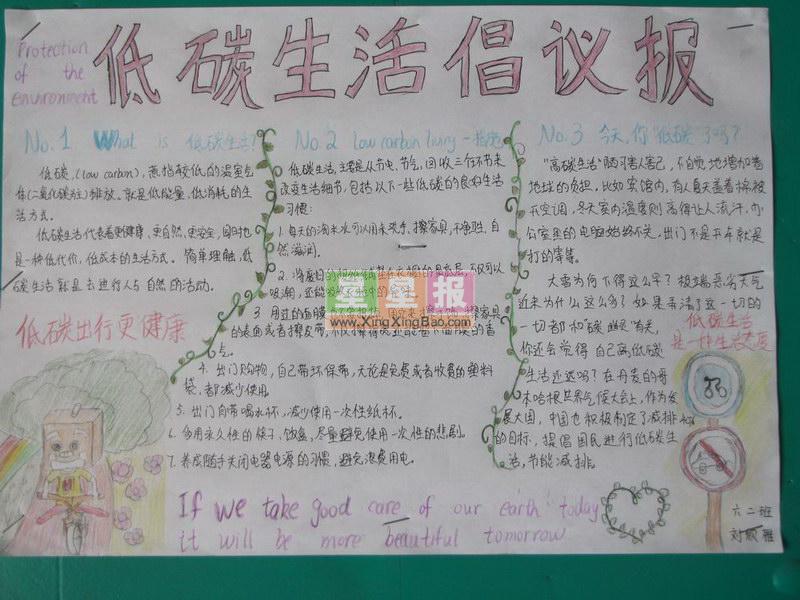 Protection
of the
environment
低碳生活倡议报
No.1 What is 低碳生活?
低碳,(low carbon),意指较低的温室气
体(二氧化碳为主)排放。就是低能量、低消耗的生
活方式。
低碳生活代表着更健康、更自然、更安全,同时也
是一种低代价、低成本的生活方式。简单理解,低
碳生活就是去进行人与自然的活动。
低碳出行更健康
No.2 low carbon living
低碳生活,主要是从节电、节气,回收三行不节来
改变生活细节,包括以下一些低碳的良好生活
习惯:
1.每天的淘米水可以用来洗手、擦家具,干净卫生,自
然滋润。
2.将废旧
吸潮,还能
3.用过的面膜
的表面或者擦皮带,不仅擦得
香
气。
4.出门购物,自己带环保带,无论是免费或者收费的塑料
袋,都减少使用。
5.出门自带喝水杯,减少使用一次性纸杯。
6.多用永久性的筷子、饭盒,尽量避免使用一次性的
7.养成随手关闭电器电源的习惯,避免浪费用电。
No.3 今天,你"低碳"了吗?
"高碳生活"既可害己,不自觉地增加着
地球的负担。比如宾馆内,有人夏天盖着棉被
开空调,冬天室内温度则高得让人流汗,办
公室里的电脑始终不关。出门不是开车就是
打的等等。
大雪为何下得这么早?极端恶劣天气
近来为什么这么多?如果弄清了这一切的
一切都和碳 有关,
你还会觉得自己离低碳
生活还远吗?在丹麦的哥
本哈根世界气候大会上,作为
发展大国,中国也积极制定了减排
的目标,提倡国民进行低碳生
活,节能减排。
低碳生活
是一种生活态度
星星报
www.XingXingBao.com
If we take good care of our earth today
it will be more beautiful tomorrow
六二班